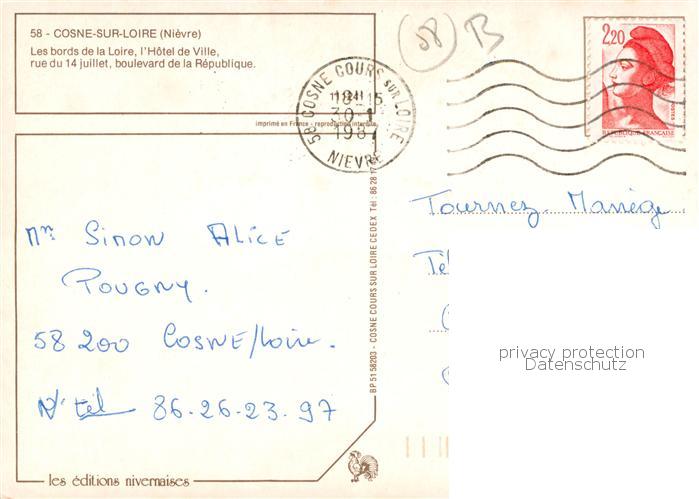 58 - COSNE-SUR-LOIRE (Nièvre)
Les bords de la Loire, l'Hôtel de Ville,
rue du 14 juillet, boulevard de la République.
imprimé en France - reproduction interdite
58 COSNE COURS SUR LOIRE
18H15
30-1
198
NIEVRE
(58) B
2,20
REPUBLIQUE FRANÇAISE
POSTES
Tournez Manège
Tél
Mme Simon ALICE
POUGNY.
58 200 COSNE/Loire.
N° tél 86-26-23.97
BP 51 58203 - COSNE COURS SUR LOIRE CEDEX Tél : 86 28
les éditions nivernaises
privacy protection
Datenschutz